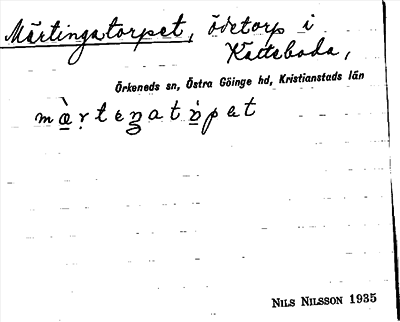 Märtingatorpet, ödetorp i
Kätteboda,
Örkeneds sn, Östra Göinge hd, Kristianstads län
mæ̀r̩teŋatòpet
NILS NILSSON 1935